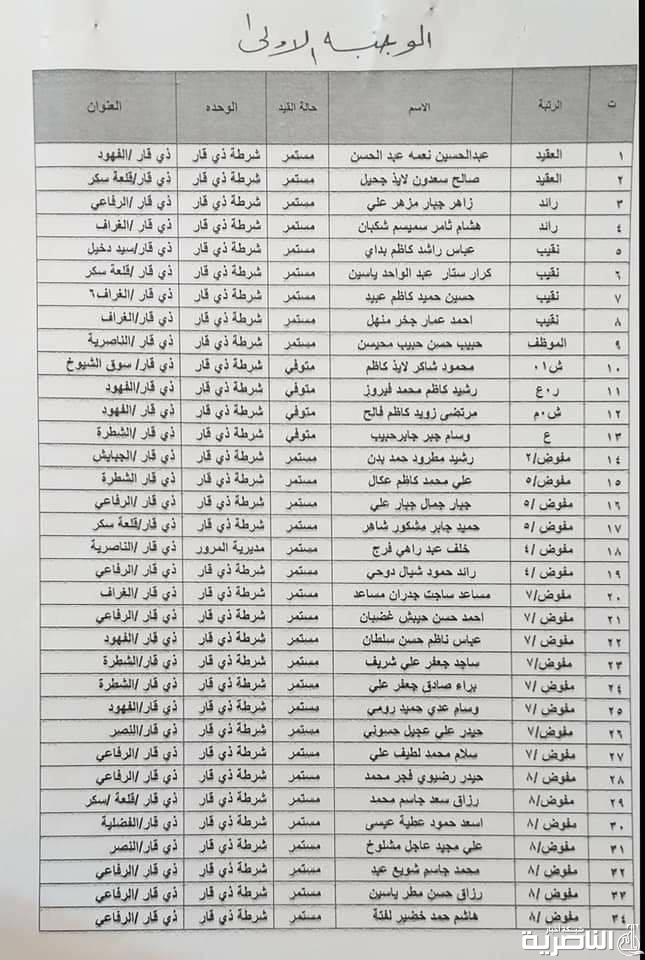 الوجبه الاولى
ت الرتبة الاسم حالة القيد الوحده العنوان
١ العقيد عبدالحسين نعمه عبد الحسن مستمر شرطة ذي قار ذي قار /الفهود
٢ العقيد صالح سعدون لايذ جحيل مستمر شرطة ذي قار ذي قار/قلعة سكر
٣ رائد زاهر جبار مزهر علي مستمر شرطة ذي قار ذي قار /الرفاعي
٤ رائد هشام ثامر سميسم شكبان مستمر شرطة ذي قار ذي قار /الغراف
٥ نقيب عباس راشد كاظم بداي مستمر شرطة ذي قار ذي قار/سيد دخيل
٦ نقيب كرار ستار عبد الواحد ياسين مستمر شرطة ذي قار ذي قار /قلعة سكر
٧ نقيب حسين حميد كاظم عبيد مستمر شرطة ذي قار ذي قار /الغراف٦
٨ نقيب احمد عمار جخر منهل مستمر شرطة ذي قار ذي قار/الغراف
٩ الموظف حبيب حسن حبيب محيسن مستمر شرطة ذي قار ذي قار /الناصرية
١٠ ش٠١ محمود شاكر لايذ كاظم متوفي شرطة ذي قار ذي قار/ سوق الشيوخ
١١ ر٠ع رشيد كاظم محمد فيروز متوفي شرطة ذي قار ذي قار/الفهود
١٢ ش٠م مرتضى زويد كاظم فالح متوفي شرطة ذي قار ذي قار /الفهود
١٣ ع وسام جبر جابرحبيب متوفي شرطة ذي قار ذي قار /الشطرة
١٤ مفوض/٢ رشيد مطرود حمد بدن مستمر شرطة ذي قار ذي قار/الجبايش
١٥ مفوض/٥ علي محمد كاظم عكال مستمر شرطة ذي قار ذي قار الشطرة
١٦ مفوض /٥ جبار جمال جبار علي مستمر شرطة ذي قار ذي قار /الرفاعي
١٧ مفوض /٥ حميد جابر مشكور شاهر مستمر شرطة ذي قار ذي قار/قلعة سكر
١٨ مفوض /٤ خلف عبد راهي فرج مستمر مديرية المرور ذي قار /الناصرية
١٩ مفوض /٤ رائد حمود شيال دوحي مستمر شرطة ذي قار ذي قار /الرفاعي
٢٠ مفوض /٧ مساعد ساجت جدران مساعد مستمر شرطة ذي قار ذي قار /الغراف
٢١ مفوض /٧ احمد حسن حبيش غضبان مستمر شرطة ذي قار ذي قار /الرفاعي
٢٢ مفوض /٧ عباس ناظم حسن سلطان مستمر شرطة ذي قار ذي قار /الفهود
٢٣ مفوض /٧ ساجد جعفر علي شريف مستمر شرطة ذي قار ذي قار/الشطرة
٢٤ مفوض /٧ براء صادق جعفر علي مستمر شرطة ذي قار ذي قار /الشطرة
٢٥ مفوض /٧ وسام عدي حميد رومي مستمر شرطة ذي قار ذي قار/الفهود
٢٦ مفوض /٧ حيدر علي عجيل حسوني مستمر شرطة ذي قار ذي قار/النصر
٢٧ مفوض /٧ سلام محمد لطيف علي مستمر شرطة ذي قار ذي قار/الرفاعي
٢٨ مفوض /٨ حيدر رضيوي فجر محمد مستمر شرطة ذي قار ذي قار /الرفاعي
٢٩ مفوض/٨ رزاق سعد جاسم محمد مستمر شرطة ذي قار ذي قار /قلعة /سكر
٣٠ مفوض /٨ اسعد حمود عطية عيسى مستمر شرطة ذي قار ذي قار/الفضلية
٣١ مفوض/٨ علي مجيد عاجل مشلوخ مستمر شرطة ذي قار ذي قار/النصر
٣٢ مفوض /٨ محمد جاسم شويع عبد مستمر شرطة ذي قار ذي قار /الرفاعي
٣٣ مفوض /٨ رزاق حسن مطر ياسين مستمر شرطة ذي قار ذي قار /الرفاعي
٣٤ مفوض /٨ هاشم حمد خضير لفتة مستمر شرطة ذي قار ذي قار /الرفاعي
شبكة اخبار
الناصرية